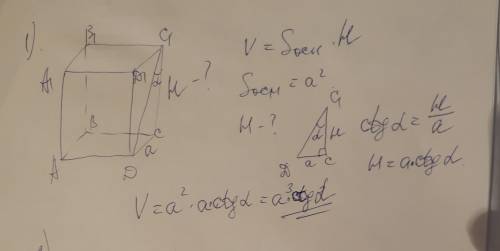 1).
B1 C1
A1 D1 α H - ?
B C
a
A D
V = Sосн · H
Sосн = a²
H - ?
C1
α H
D a C
ctgα = H/a
H = a·ctgα.
V = a² · a·ctgα = a³·ctgα